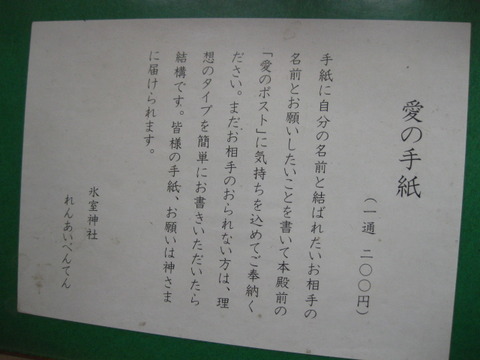 愛の手紙
(一通 二〇〇円)
手紙に自分の名前と結ばれたいお相手の
名前とお願いしたいことを書いて本殿前の
「愛のポスト」に気持ちを込めてご奉納く
ださい。まだお相手のおられない方は、理
想のタイプを簡単にお書きいただいたら
結構です。皆様の手紙、お願いは神さま
に届けられます。
氷室神社
れんあいべんてん